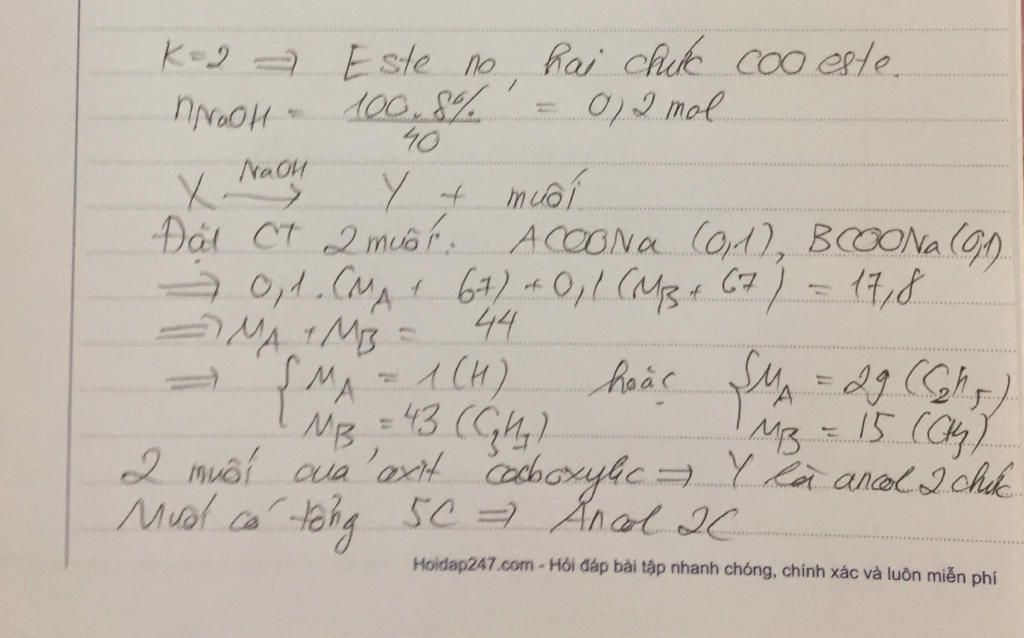 K=2 => Este no, hai chức COO este.
nNaOH = 100.8% / 40 = 0,2 mol
X —NaOH→ Y + muối
Đặt CT 2 muối: ACOONa (0,1), BCOONa (0,1)
=> 0,1.(MA + 67) + 0,1(MB + 67) = 17,8
=> MA + MB = 44
=> { MA = 1 (H) hoặc { MA = 29 (C2H5)
MB = 43 (C3H7) MB = 15 (CH3)
2 muối của axit cacboxylic => Y là ancol 2 chức
Muối có tổng 5C => Ancol 2C
Hoidap247.com - Hỏi đáp bài tập nhanh chóng, chính xác và luôn miễn phí